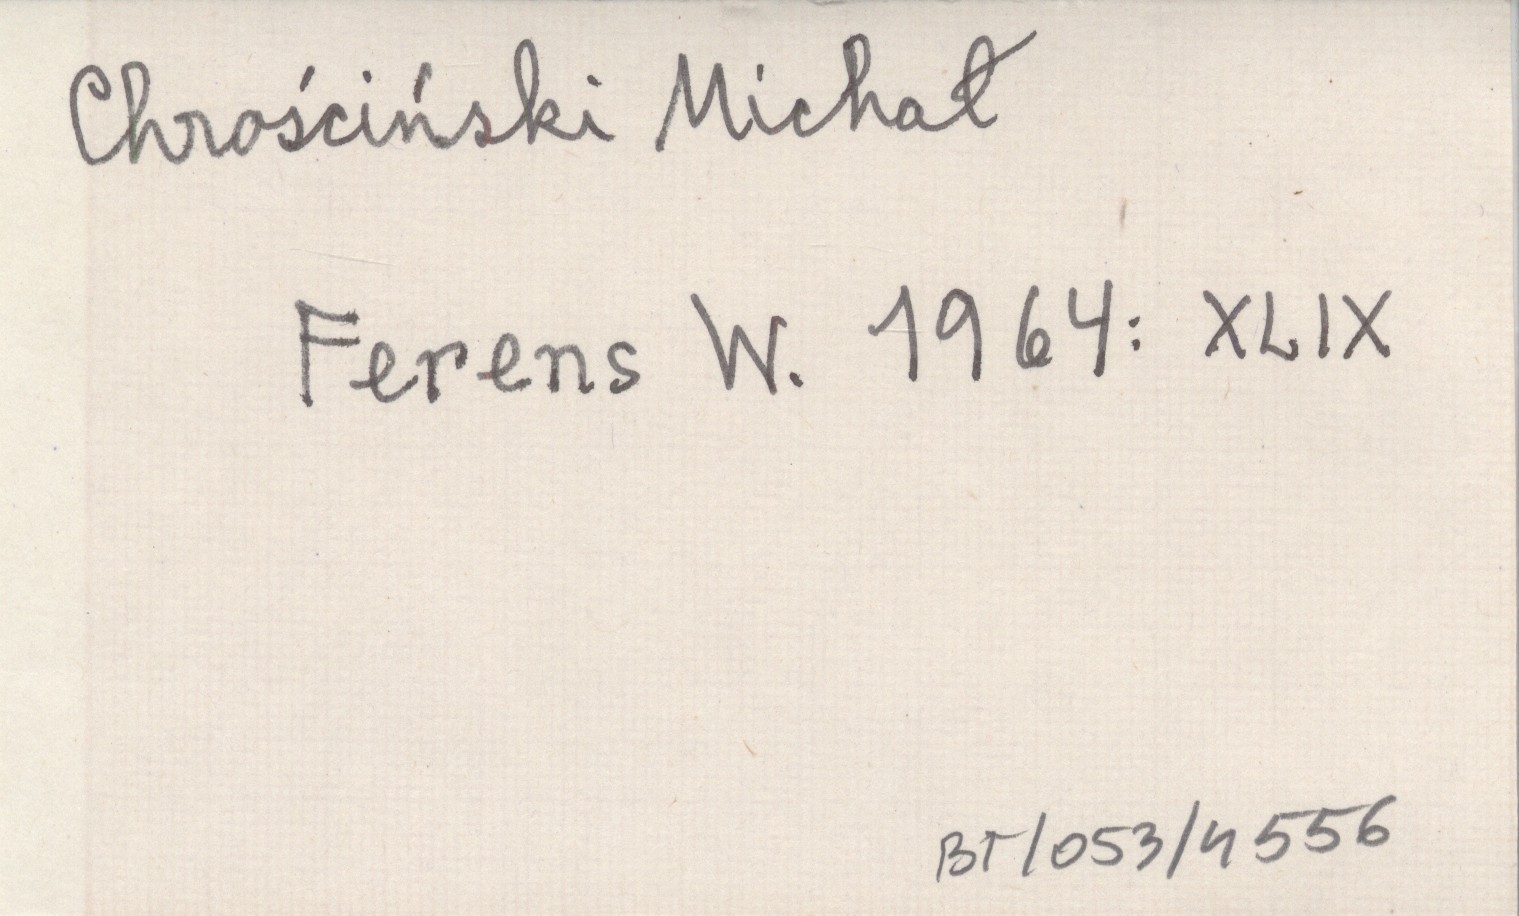 Chrościński Michał
Ferens W. 1964: XLIX
BT/053/4556